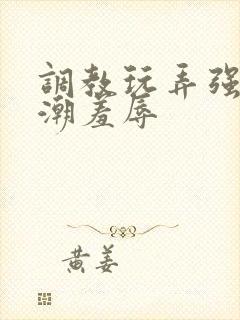 調教玩弄强
潮羞辱
黄姜